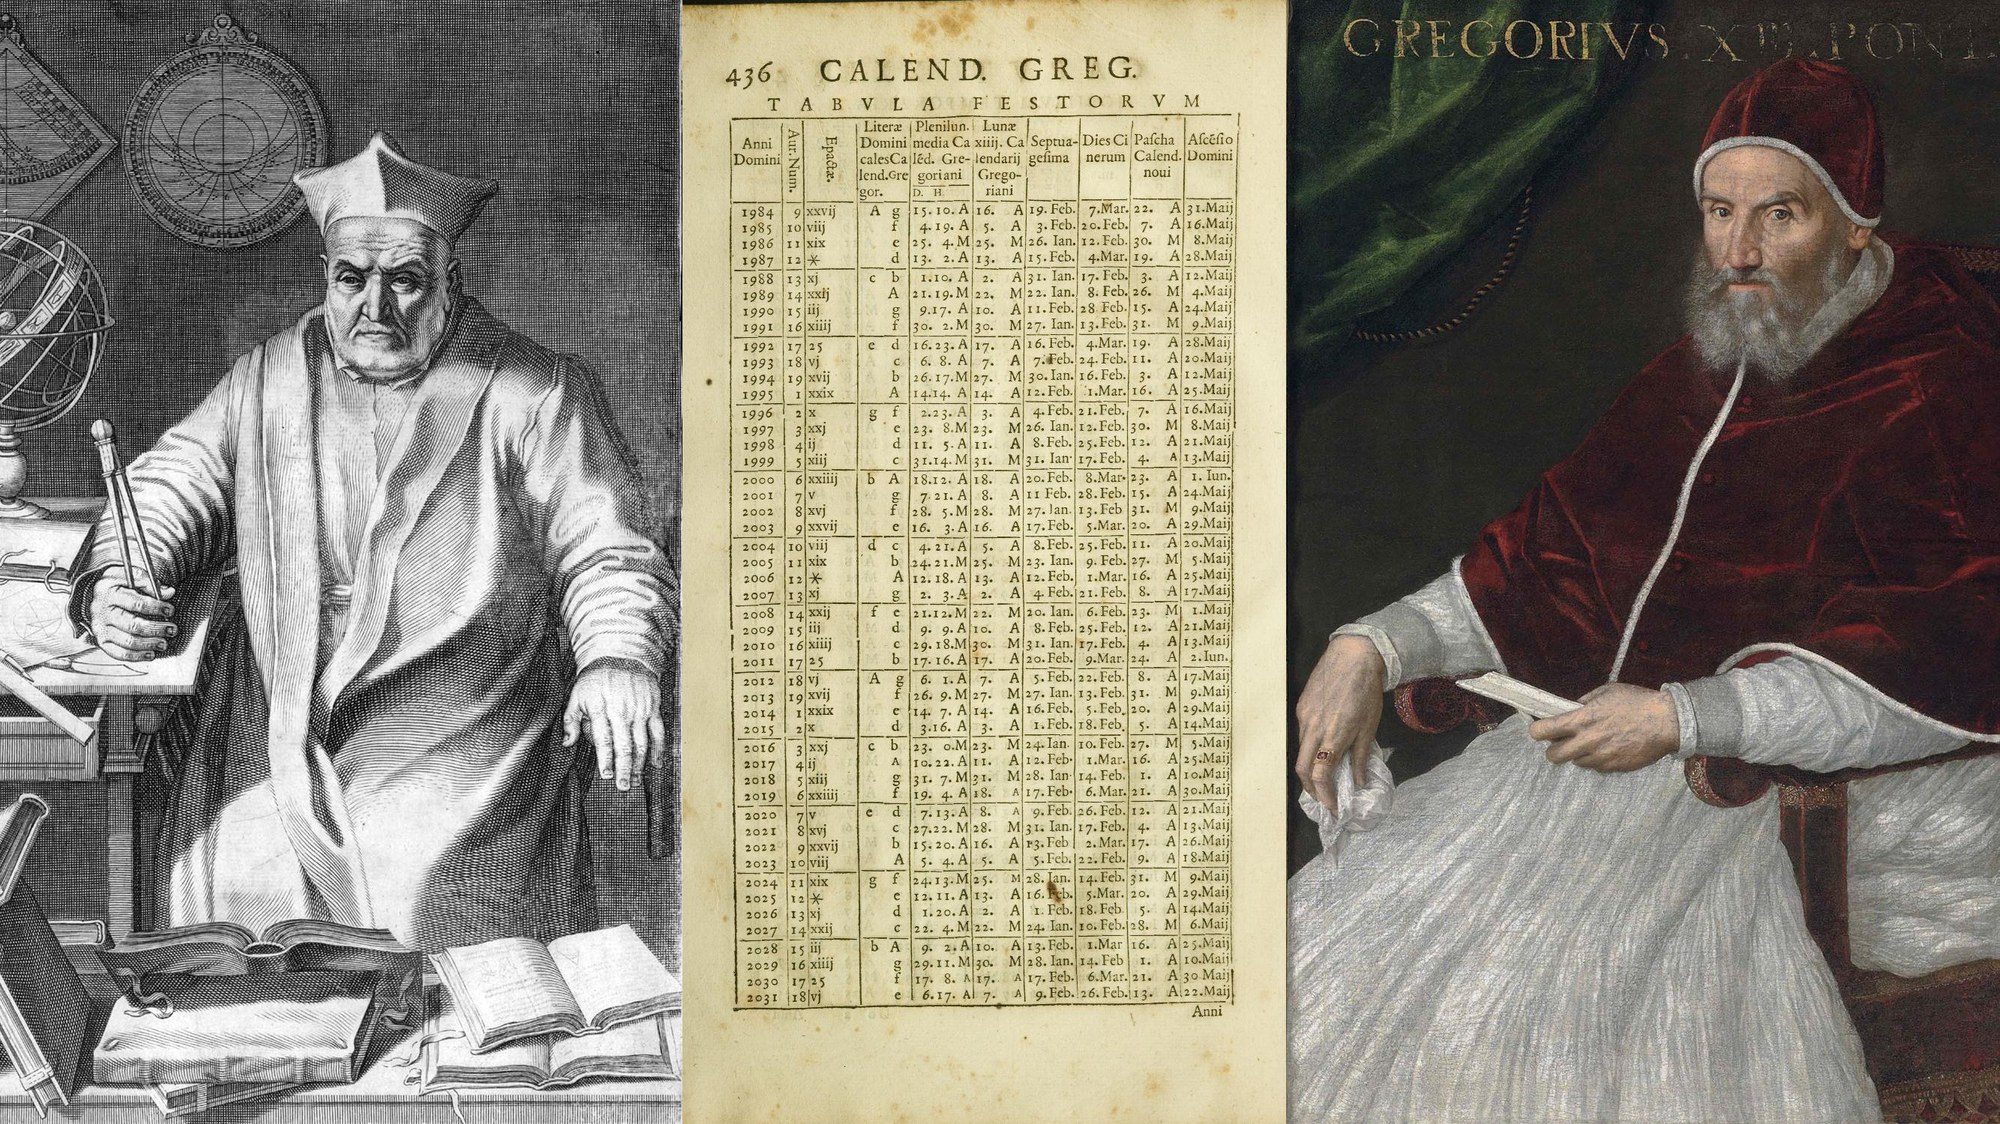 436 CALEND. GREG.
TABVLA FESTORVM
Anni Domini
Aur. Num.
Epactæ.
Literæ Domini cales Ca lend. Gre gor.
Plenilun. media Ca lẽd. Gregoriani D. H.
Lunæ xiiij. Ca lendarij Gregoriani
Septuagesima
Dies Ci nerum
Pascha Calend. noui
Ascẽsio Domini
1984 9 xxvij A g 15. 10. A 16. A 19. Feb. 7. Mar. 22. A 31. Maij
1985 10 viij f 4. 19. A 5. A 3. Feb. 20. Feb. 7. A 16. Maij
1986 11 xix e 25. 4. M 25. M 26. Ian. 12. Feb. 30. M 8. Maij
1987 12 * d 13. 2. A 13. A 15. Feb. 4. Mar. 19. A 28. Maij
1988 13 xj c b 1. 10. A 2. A 31. Ian. 17. Feb. 3. A 12. Maij
1989 14 xxij A 21. 19. M 22. M 22. Ian. 8. Feb. 26. M 4. Maij
1990 15 iij g 9. 17. A 10. A 11. Feb. 28 Feb. 15. A 24. Maij
1991 16 xiiij f 30. 2. M 30. M 27. Ian. 13. Feb. 31. M 9. Maij
1992 17 25 e d 16. 23. A 17. A 16. Feb. 4. Mar. 19. A 28. Maij
1993 18 vj c 6. 8. A 7. A 7. Feb. 24. Feb. 11. A 20. Maij
1994 19 xvij b 26. 17. M 27. M 30. Ian. 16. Feb. 3. A 12. Maij
1995 1 xxix A 14. 14. A 14. A 12. Feb. 1. Mar. 16. A 25. Maij
1996 2 x g f 2. 23. A 3. A 4. Feb. 21. Feb. 7. A 16. Maij
1997 3 xxj e 23. 8. M 23. M 26. Ian. 12. Feb. 30. M 8. Maij
1998 4 ij d 11. 5. A 11. A 8. Feb. 25. Feb. 12. A 21. Maij
1999 5 xiij c 31. 14. M 31. M 31. Ian. 17. Feb. 4. A 13. Maij
2000 6 xxiiij b A 18. 12. A 18. A 20. Feb. 8. Mar. 23. A 1. Iun.
2001 7 v g 7 21. A 8. A 11 Feb. 28. Feb. 15. A 24. Maij
2002 8 xvj f 28. 5. M 28. M 27. Ian. 13. Feb 31 M 9. Maij
2003 9 xxvij e 16. 3. A 16. A 17. Feb. 5. Mar. 20. A 29. Maij
2004 10 viij d c 4. 21. A 5. A 8. Feb. 25. Feb. 11. A 20. Maij
2005 11 xix b 24. 21. M 25. M 23. Ian. 9. Feb. 27. M 5. Maij
2006 12 * A 12. 18. A 13. A 12. Feb. 1. Mar. 16. A 25. Maij
2007 13 xj g 2. 3. A 2. A 4. Feb. 21. Feb. 8. A 17. Maij
2008 14 xxij f e 21. 12. M 22. M 20. Ian. 6. Feb. 23. M 1. Maij
2009 15 iij d 9. 9. A 10. A 8. Feb. 25. Feb. 12. A 21. Maij
2010 16 xiiij c 29. 18. M 30. M 31. Ian. 17. Feb. 4. A 13. Maij
2011 17 25 b 17. 16. A 17. A 20. Feb. 9. Mar. 24. A 2. Iun.
2012 18 vj A g 6. 1. A 7. A 5. Feb. 22. Feb. 8. A 17. Maij
2013 19 xvij f 26. 9. M 27. M 27. Ian. 13. Feb. 31. M 9. Maij
2014 1 xxix e 14. 7. A 14. A 16. Feb. 5. Feb. 20. A 29. Maij
2015 2 x d 3. 16. A 3. A 1. Feb. 18. Feb. 5. A 14. Maij
2016 3 xxj c b 23. 0. M 23. M 24. Ian. 10. Feb. 27. M 5. Maij
2017 4 ij A 10. 22. A 11. A 12. Feb. 1. Mar. 16. A 25. Maij
2018 5 xiij g 31. 7. M 31. M 28. Ian 14. Feb. 1. A 10. Maij
2019 6 xxiiij f 19. 4. A 18. A 17. Feb. 6. Mar. 21. A 30. Maij
2020 7 v e d 7. 13. A 8. A 9. Feb. 26. Feb. 12. A 21. Maij
2021 8 xvj c 27. 22. M 28. M 31. Ian. 17. Feb. 4. A 13. Maij
2022 9 xxvij b 15. 20. A 16. A 13. Feb 2. Mar. 17. A 26. Maij
2023 10 viij A 5. 4. A 5. A 5. Feb. 22. Feb. 9. A 18. Maij
2024 11 xix g f 24. 13. M 25. M 28. Ian. 14. Feb. 31. M 9. Maij
2025 12 * e 12. 11. A 13. A 16. Feb. 5. Mar. 20. A 29. Maij
2026 13 xj d 1. 20. A 2. A 1. Feb. 18. Feb 5. A 14. Maij
2027 14 xxij c 22. 4. M 22. M 24. Ian. 10. Feb. 28. M 6. Maij
2028 15 iij b A 9. 2. A 10. A 13. Feb. 1. Mar 16. A 25. Maij
2029 16 xiiij g 29. 11. M 30. M 28. Ian. 14. Feb 1. A 10. Maij
2030 17 25 f 17. 8. A 17. A 17. Feb. 6. Mar. 21. A 30 Maij
2031 18 vj e 6. 17. A 7. A 9. Feb. 26. Feb. 13. A 22. Maij
Anni
GREGORIVS. XIII. PONT.